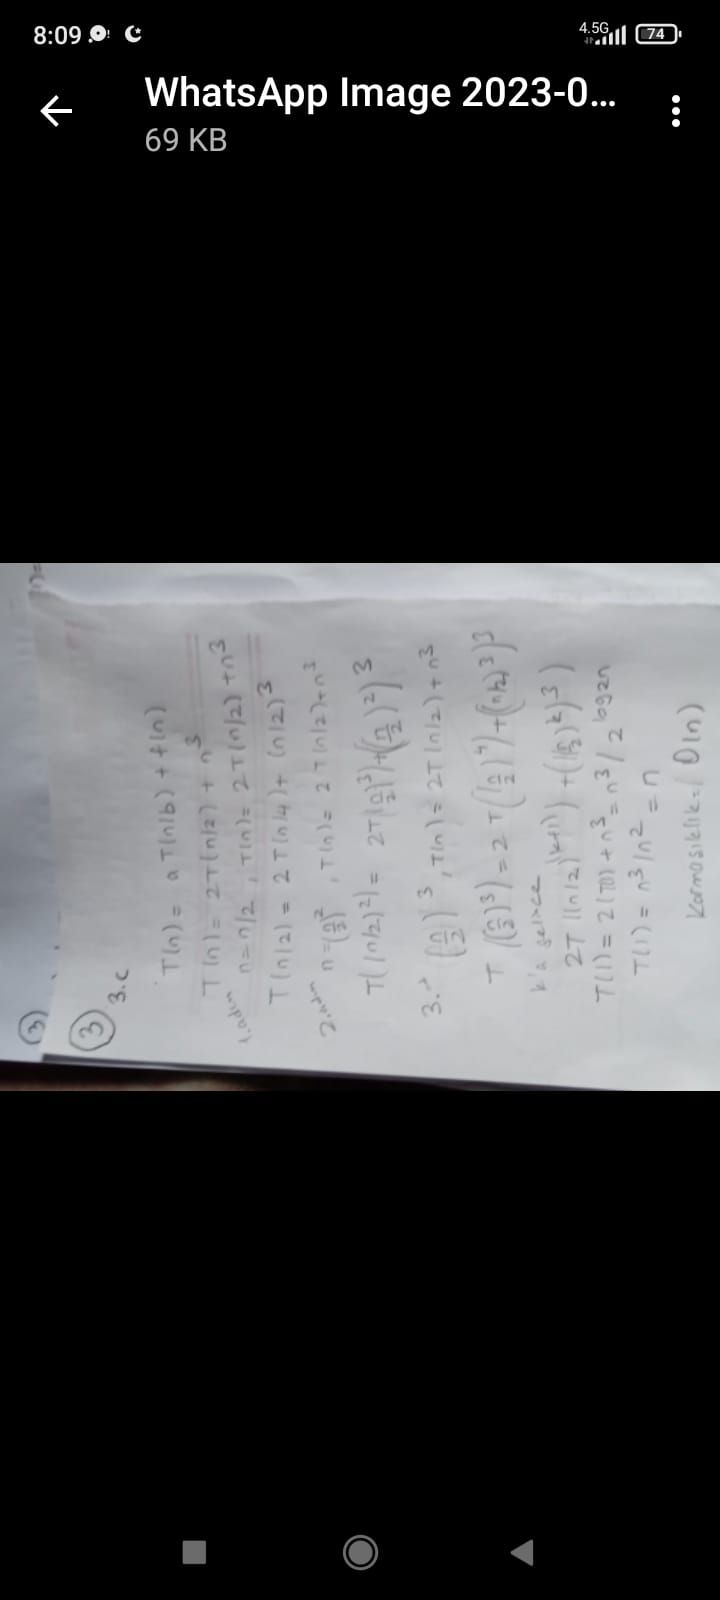 8:09
4.5G
74
WhatsApp Image 2023-0...
69 KB
3
3
3.c
T(n) = a T(n/b) + f(n)
T(n) = 2T(n/2) + n³
1.adım n=n/2, T(n)= 2T(n/2) +n³
T(n/2) = 2T(n/4)+ (n/2)³
2.adım n=(n/2)², T(n)= 2T(n/2)+n³
T((n/2)²)= 2T((n/2)³)+((n/2)²)³
3. (n/2)³, T(n)= 2T(n/2)+n³
T((n/2)³)=2T((n/2)⁴)+((n/2)³)³
k'a gelince
2T((n/2)^(k+1))+((n/2)^k)³)
T(1)= 2(T0)+n³=n³/2^log2n
T(1)= n³/n²=n
Karmaşıklık= O(n)